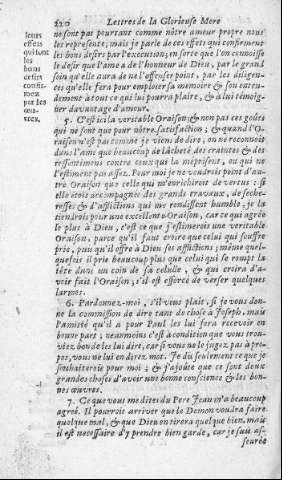 220 Lettres de la Glorieuse Mere
leurs
effets
qui sont
les
bons
desirs
confir-
mez
par les
œu-
vres.
ne sont pas pourtant comme nôtre amour propre nous
les represente; mais je parle de ces effets qui confirment
les bons desirs par l'execution; en sorte que l'on connoisse
le desir que l'ame a de l'honneur de Dieu, par le grand
soin qu'elle aura de ne l'offenser point, par les diligen-
ces qu'elle fera pour emploier sa memoire & son enten-
dement à tout ce qui lui pourra plaire, & à lui témoig-
ner davantage d'amour.
5. C'est ici la veritable Oraison; & non pas ces goûts
qui ne sont que pour nôtre satisfaction; & quand l'O-
raison n'est pas comme je viens de dire, on ne reconnoit
dans l'ame que beaucoup de lâcheté des craintes & des
ressentimens contre ceux qui la méprisent, ou qui ne
l'estiment pas assez. Pour moi je ne voudrois point d'au-
tre Oraison que celle qui m'enrichiroit de vertus: si
elle étoit accompagnée des grands travaux, de seche-
resses & d'afflictions qui me rendissent humble, je la
tiendrois pour une excellente Oraison, car ce qui agrée
le plus à Dieu, c'est ce que j'estimerois une veritable
Oraison, parce qu'il faut croire que celui qui souffre
prie, puis qu'il offre à Dieu ses afflictions; même quel-
quefois il prie beaucoup plus que celui qui se rompt la
tête dans un coin de sa celulle, & qui croira d'a-
voir fait l'Oraison, s'il est efforcé de verser quelques
larmes.
6. Pardonnez-moi, s'il vous plait, si je vous don-
ne la commission de dire tant de chose à Joseph, mais
l'amitié qu'il a pour Paul les lui fera recevoir en
bonne part; neanmoins c'est à condition que vous trou-
viez bon de les lui dire, car si vous ne le jugez pas à pro-
pos, vous ne lui en direz mot. Je du seulement ce que je
souhaiterois pour moi; & j'ajoûte que ce sont deux
grandes choses d'avoir une bonne conscience & les bon-
nes œuvres.
7. Ce que vous me dites du Pere Jean m'a beaucoup
agreé. Il pourroit arriver que le Demon voudra faire
quelque mal, & que Dieu en tirera quelque bien, mais
il est necessaire d'y prendre bien garde, car je suis as-
seurée